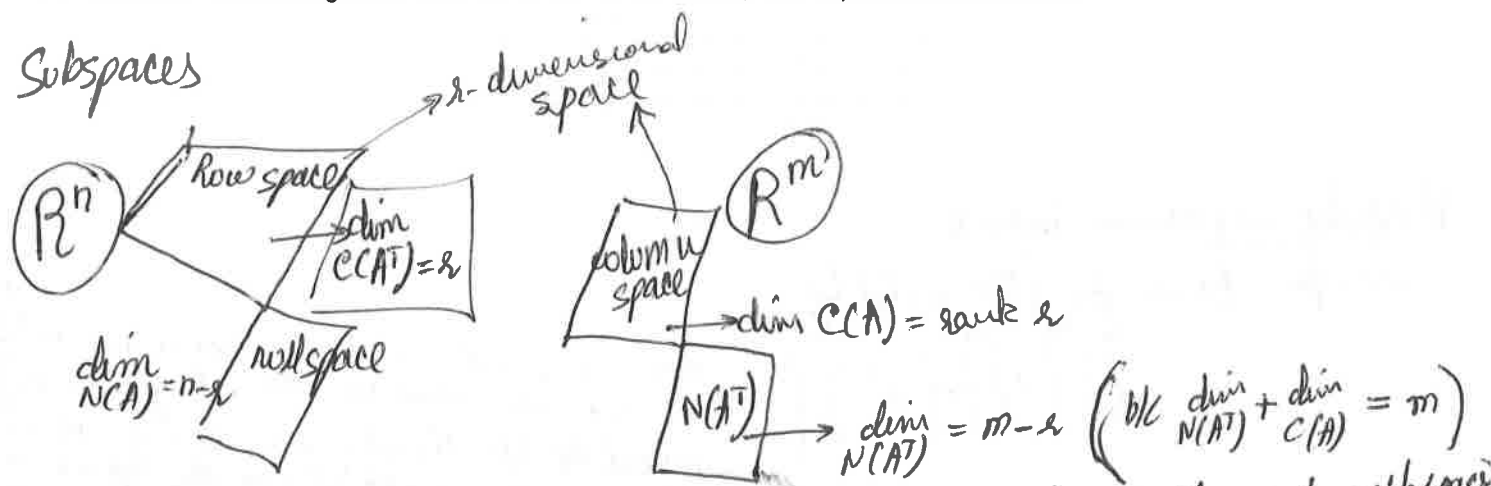 Subspaces
r-dimensional
space
R^n
Row space
dim
C(A^T) = r
nullspace
dim
N(A) = n-r
R^m
column
space
dim C(A) = rank r
N(A^T)
dim
N(A^T) = m-r (b/c dim N(A^T) + dim C(A) = m)